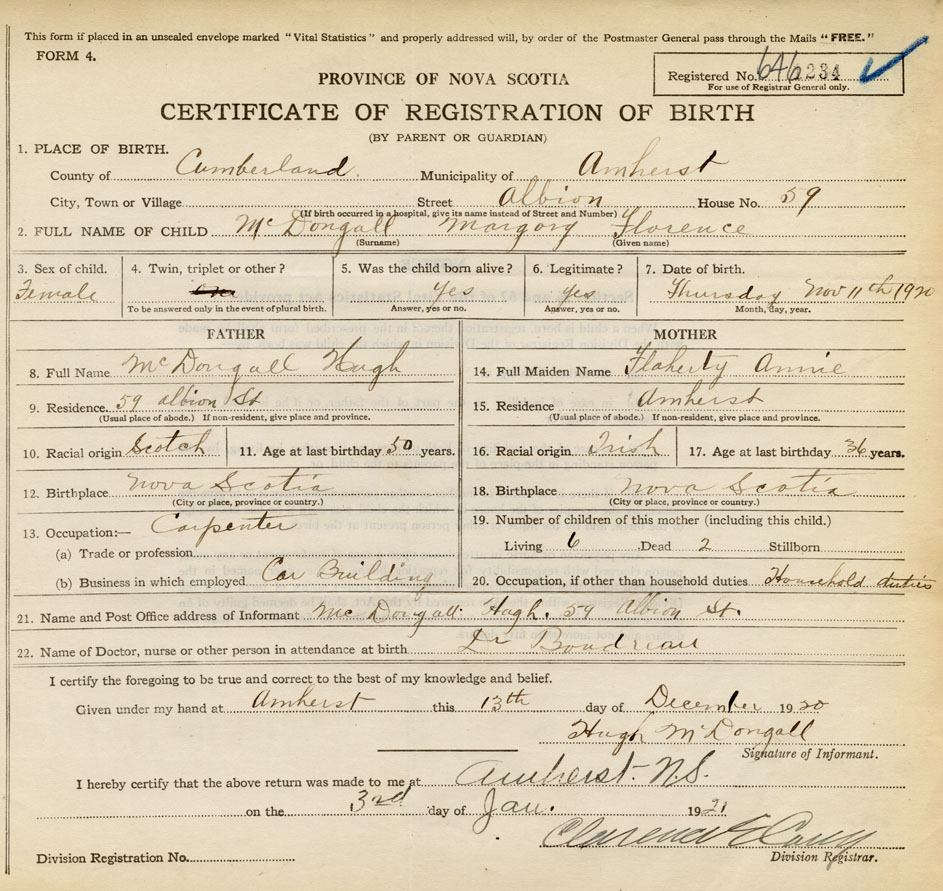 This form if placed in an unsealed envelope marked "Vital Statistics" and properly addressed will, by order of the Postmaster General pass through the Mails "FREE."
FORM 4.
PROVINCE OF NOVA SCOTIA
Registered No. 646234
For use of Registrar General only.
CERTIFICATE OF REGISTRATION OF BIRTH
(BY PARENT OR GUARDIAN)
1. PLACE OF BIRTH.
County of Cumberland Municipality of Amherst
City, Town or Village Street Albion House No. 59
(If birth occurred in a hospital, give its name instead of Street and Number)
2. FULL NAME OF CHILD McDongall Margory Florence
(Surname) (Given name)
3. Sex of child. 4. Twin, triplet or other? 5. Was the child born alive? 6. Legitimate? 7. Date of birth.
Female one Yes yes Thursday Nov 11th 1920
To be answered only in the event of plural birth. Answer, yes or no. Answer, yes or no. Month, day, year.
FATHER
8. Full Name McDongall Hugh
9. Residence. 59 albion St
(Usual place of abode.) If non-resident, give place and province.
10. Racial origin Scotch 11. Age at last birthday 50 years.
12. Birthplace Nova Scotia
(City or place, province or country.)
13. Occupation:— Carpenter
(a) Trade or profession
(b) Business in which employed Car Building
MOTHER
14. Full Maiden Name Flaherty Annie
15. Residence Amherst
(Usual place of abode.) If non-resident, give place and province.
16. Racial origin Irish 17. Age at last birthday 36 years.
18. Birthplace Nova Scotia
(City or place, province or country.)
19. Number of children of this mother (including this child.)
Living 6 Dead 2 Stillborn
20. Occupation, if other than household duties Household duties
21. Name and Post Office address of Informant McDongall Hugh. 59 Albion St.
22. Name of Doctor, nurse or other person in attendance at birth Dr Boudreau
I certify the foregoing to be true and correct to the best of my knowledge and belief.
Given under my hand at Amherst this 13th day of December 1920
Hugh McDongall
Signature of Informant.
I hereby certify that the above return was made to me at Amherst. N.S.
on the 3rd day of Jan. 1921
Clarence
Division Registration No. Division Registrar.